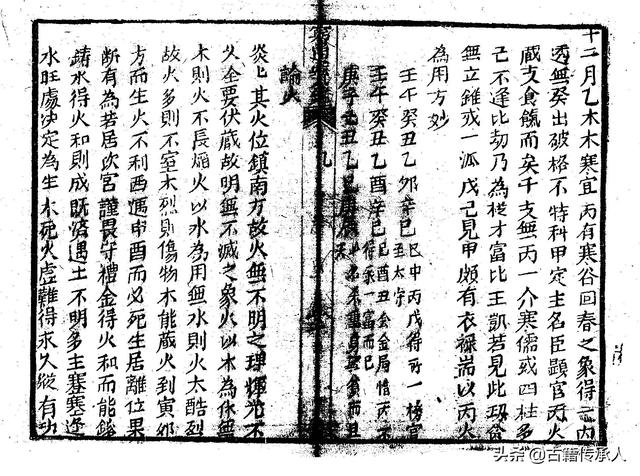 十二月乙木木寒宜丙有寒谷回春之象得一丙
透無癸出破格不特科甲定主名臣顯宦丙火
藏支食餼而矣干支無丙一介寒儒或四柱多
己不逢比劫乃為從才富比王凱若見比劫
無立錐或一派戊己見甲頗有衣祿耑以丙火
為用方妙
壬午癸丑乙卯辛巳 巳中丙戊得所一榜官
至太守
壬午癸丑乙酉辛巳 巳酉丑会金局惜丙不
得承一富而已
庚午己丑乙巳
論火
炎〻其火位鎮南方故火無不明之理輝光不
久全要伏藏故明無不滅之象火以木為体無
木則火不長焰火以水為用無水則火太酷烈
故火多則不實木烈則傷物木能藏火到寅卯
方而生火不利西遇申酉而必死生居離位果
断有為若居坎宮謹畏守禮金得火和而能鎔
鑄水得火和則成既濟遇土不明多主蹇塞逢
水旺處決定為生木死火虛難得永久縱有功
头条@古籍传承人